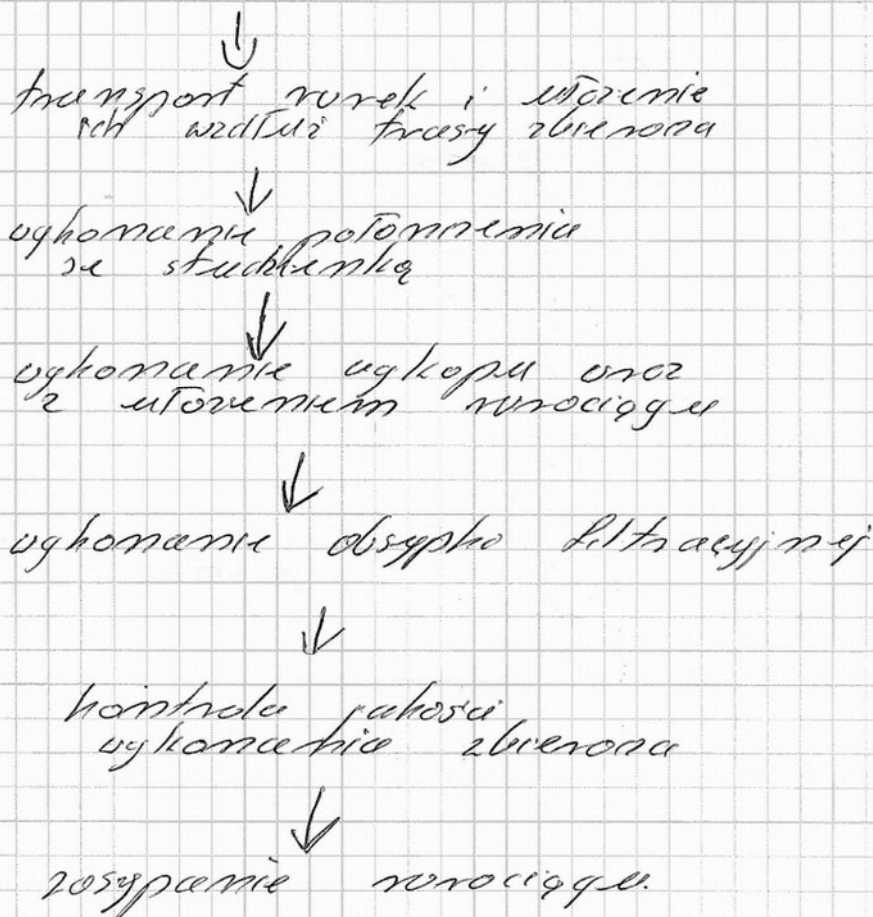 ↓
transport rurek i ułożenie
ich wzdłuż trasy zbieracza
↓
wykonanie połączenia
ze studzienką
↓
wykonanie wykopu wraz
z ułożeniem rurociągu
↓
wykonanie obsypki filtracyjnej
↓
kontrola jakości
wykonania zbieracza
↓
zasypanie rurociągu.